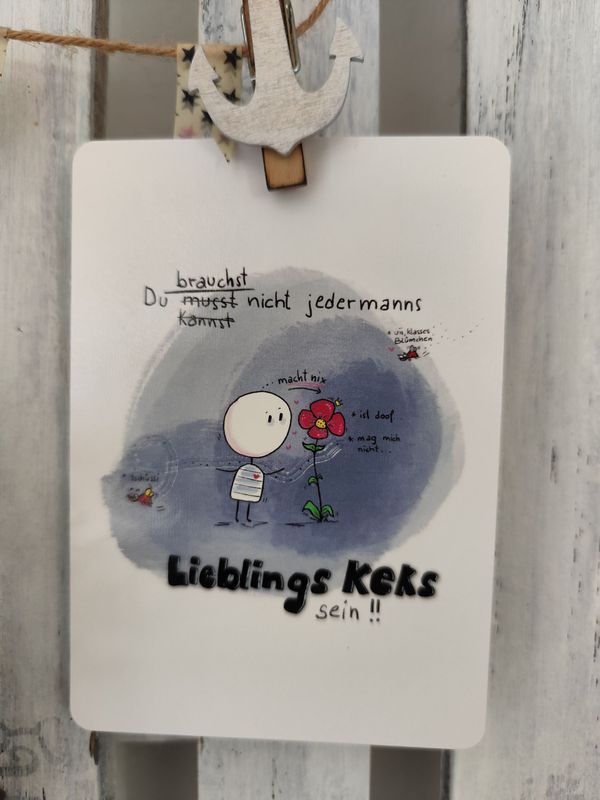 brauchst
Du musst nicht jedermanns
kannst
* uii, klasses
Blümchen
... macht nix
* ist doof
* mag mich
nicht...
* tschüssi
Lieblings Keks
sein !!